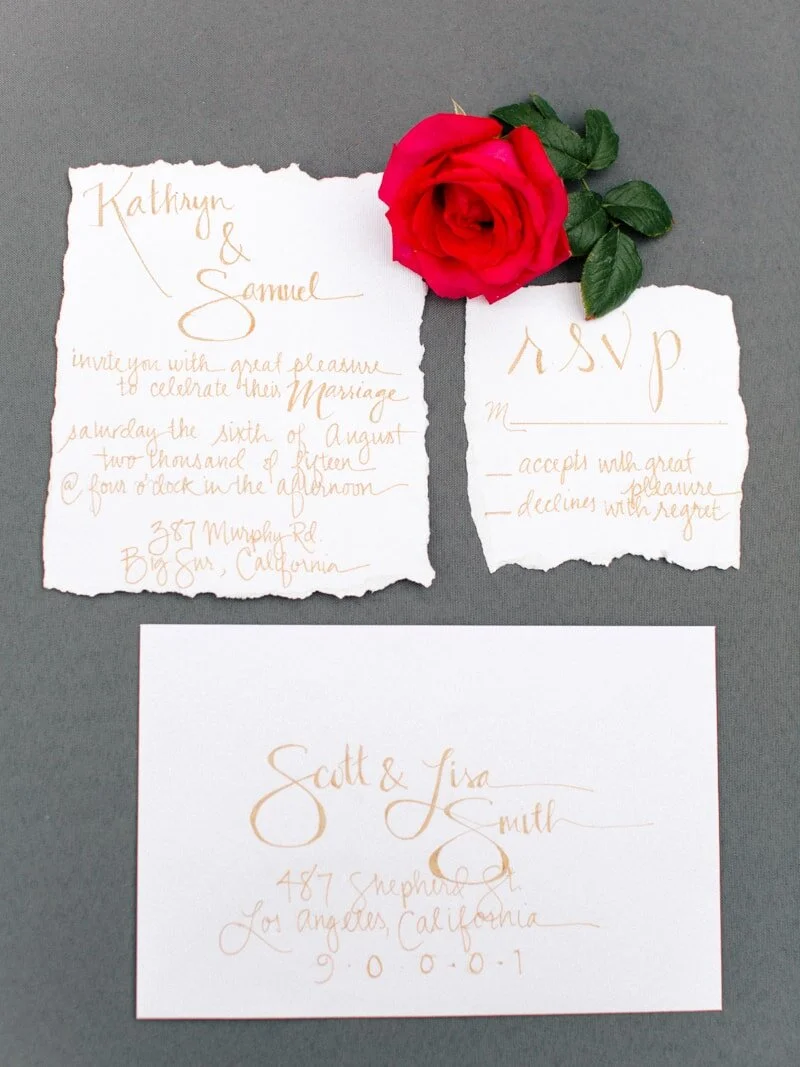 Kathryn
&
Samuel
invite you with great pleasure
to celebrate their Marriage
saturday the sixth of August
two thousand of fifteen
@ four o'clock in the afternoon
387 Murphy Rd.
Big Sur, California
r.s.v.p.
M
accepts with great
pleasure
declines with regret
Scott & Lisa
Smith
487 Shepherd St.
Los Angeles, California
9·0 0·0·1